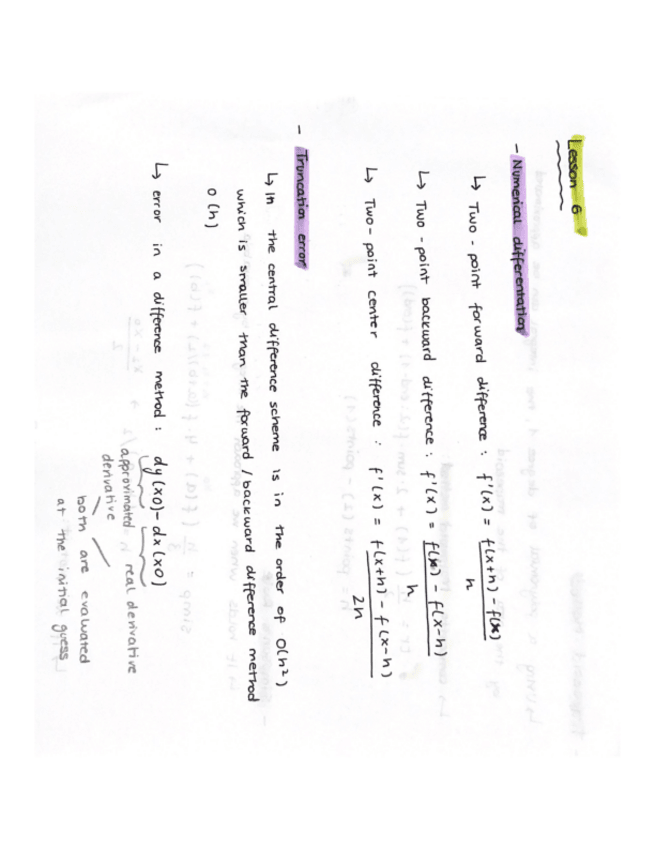 Lesson 6
- Numerical differentation
↳ Two-point forward difference : f'(x) = f(x+h) - f(x) / h
↳ Two-point backward difference : f'(x) = f(x) - f(x-h) / h
↳ Two-point center difference : f'(x) = f(x+h) - f(x-h) / 2h
- Truncation error
↳ In the central difference scheme is in the order of O(h²)
which is smaller than the forward / backward difference method
O(h)
↳ error in a difference method : dy(x0) - dx(x0)
approvimated real derivative
derivative
both are evaluated
at the initial guess